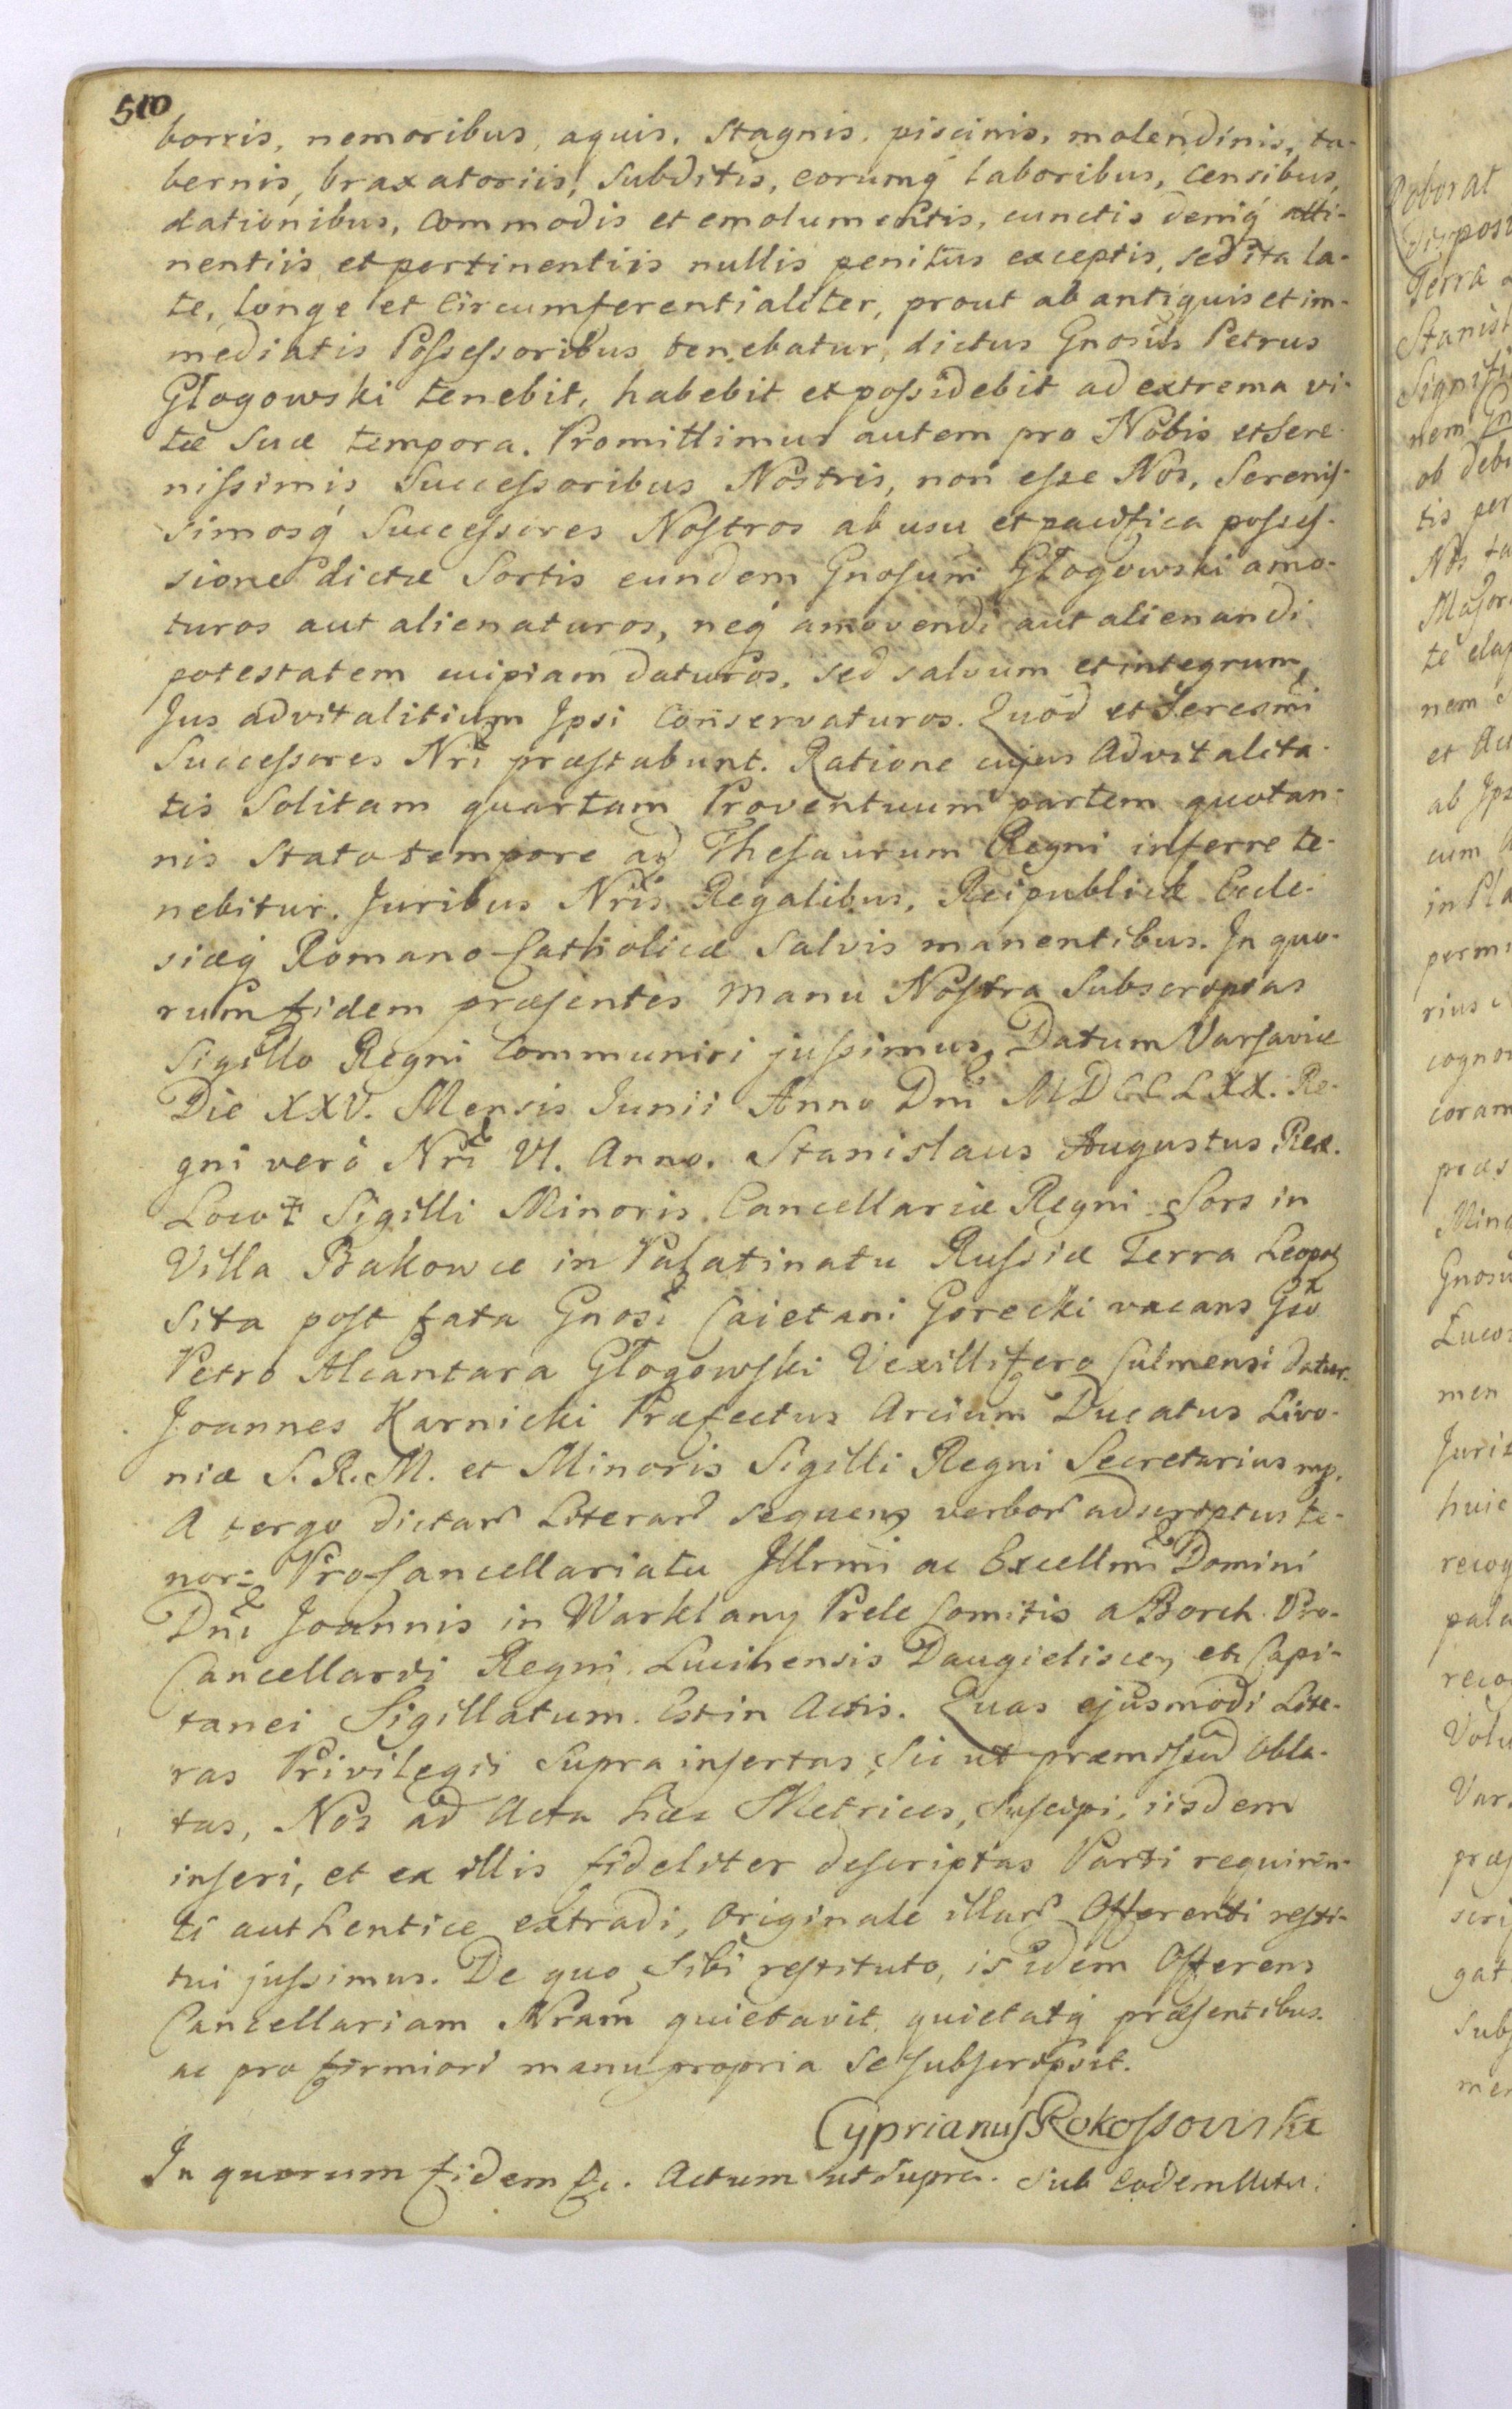 510
borris, nemoribus, aquis, stagnis, piscinis, molendinis, ta-
bernis, braxatoriis, subditis, eorumq́ laboribus, censibus,
dationibus, commodis et emolumentis, cunctis deniq́ atti-
nentiis et pertinentiis nullis penitus exceptis, sed ita la-
te, longe et circumferentialiter, prout ab antiquis et im-
mediatis Possessoribus tenebatur, dictus Gnosus Petrus
Głogowski tenebit, habebit et possidebit ad extrema vi-
tæ suæ tempora. Promittimus autem pro Nobis et Sere-
nissimis Successoribus Nostris, non esse Nos, Serenis-
simosq́ Successores Nostros ab usu et pacifica posses-
sione dictæ Sortis eundem Gnosum Głogowski amo-
turos aut alienaturos, neq́ amovendi aut alienandi
potestatem cuipiam daturos, sed salvum et integrum,
Jus advitalitium Ipsi conservaturos. Quod et Serenmi
Successores Nri præstabunt. Ratione cujus Advitalita-
tis solitam quartam Proventuum partem quotan-
nis stato tempore ad Thesaurum Regni inferre te-
nebitur. Juribus Nris Regalibus, Reipublicæ Eccle-
siæq́ Romano-Catholicæ salvis manentibus. In quo-
rum fidem præsentes manu Nostra subscriptas
Sigillo Regni communiri jussimus. Datum Varsaviæ
Die XXV. Mensis Junii Anno Dni MDCCLXX. Re-
gni verò Nri VI. Anno. Stanislaus Augustus Rex.
Locus Sigilli Minoris Cancellariæ Regni. Sors in
Villa Bakowce in Palatinatu Russiæ Terra Leopol
sita post fata Gnosi Caietani Gorecki vacans Gso
Petro Alcantara Głogowski Vexillifero Culmensi datur.
Joannes Karnicki Præfectus Arcium Ducatus Livo-
niæ S. R. M. et Minoris Sigilli Regni Secretarius mp.
A tergo dictar Literar sequens verbor adscriptus te-
nor: ProCancellariatu Illrmi ac Excellmi Domini
Dni Joannis in Warklany Prele Comitis a Borch Pro-
Cancellarii Regni, Lucinensis Daugielisce, et Capi-
tanei Sigillatum. Est in Actis. Quas ejusmodi Lite-
ras Privilegii supra insertas, sic ut præmissũ obla-
tas, Nos ad Acta hæc Metrices, suscipi, iisdem
inseri, et ex illis fideliter descriptas Parti requiren-
ti authentice extradi, Originale illar Offerenti resti-
tui jussimus. De quo sibi restituto, is idem Offerens
Cancellariam Nram quietavit quietatq́ præsentibus.
ac pro firmiori manu propria se subscripsit.
Cyprianus Rokossowski
In quorum fidem &c. Actum ut supra. Sub eodem Actu.